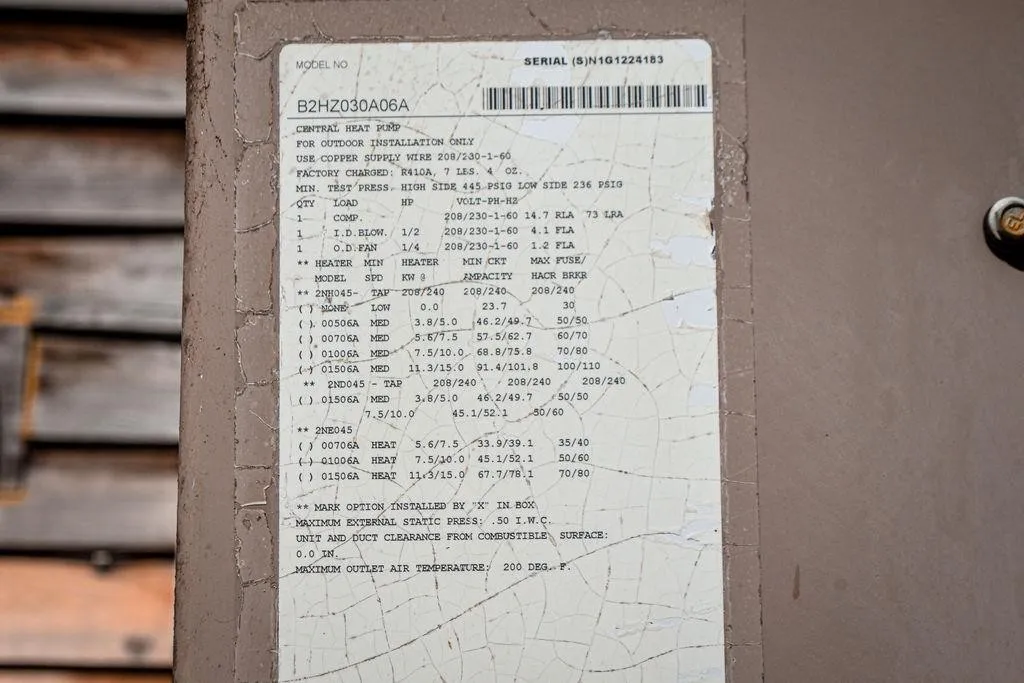 MODEL NO
SERIAL (S)N1G1224183
B2HZ030A06A
CENTRAL HEAT PUMP
FOR OUTDOOR INSTALLATION ONLY
USE COPPER SUPPLY WIRE 208/230-1-60
FACTORY CHARGED: R410A, 7 LBS. 4 OZ.
MIN. TEST PRESS. HIGH SIDE 445 PSIG LOW SIDE 236 PSIG
QTY LOAD HP VOLT-PH-HZ
1 COMP. 208/230-1-60 14.7 RLA 73 LRA
1 I.D.BLOW. 1/2 208/230-1-60 4.1 FLA
1 O.D.FAN 1/4 208/230-1-60 1.2 FLA
** HEATER MIN HEATER MIN CKT MAX FUSE/
MODEL SPD KW @ AMPACITY HACR BRKR
** 2NH045- TAP 208/240 208/240 208/240
( ) NONE LOW 0.0 23.7 30
( ) 00506A MED 3.8/5.0 46.2/49.7 50/50
( ) 00706A MED 5.6/7.5 57.5/62.7 60/70
( ) 01006A MED 7.5/10.0 68.8/75.8 70/80
( ) 01506A MED 11.3/15.0 91.4/101.8 100/110
** 2ND045 - TAP 208/240 208/240 208/240
( ) 01506A MED 3.8/5.0 46.2/49.7 50/50
7.5/10.0 45.1/52.1 50/60
** 2NE045
( ) 00706A HEAT 5.6/7.5 33.9/39.1 35/40
( ) 01006A HEAT 7.5/10.0 45.1/52.1 50/60
( ) 01506A HEAT 11.3/15.0 67.7/78.1 70/80
** MARK OPTION INSTALLED BY "X" IN BOX
MAXIMUM EXTERNAL STATIC PRESS: .50 I.W.C.
UNIT AND DUCT CLEARANCE FROM COMBUSTIBLE SURFACE:
0.0 IN.
MAXIMUM OUTLET AIR TEMPERATURE: 200 DEG. F.